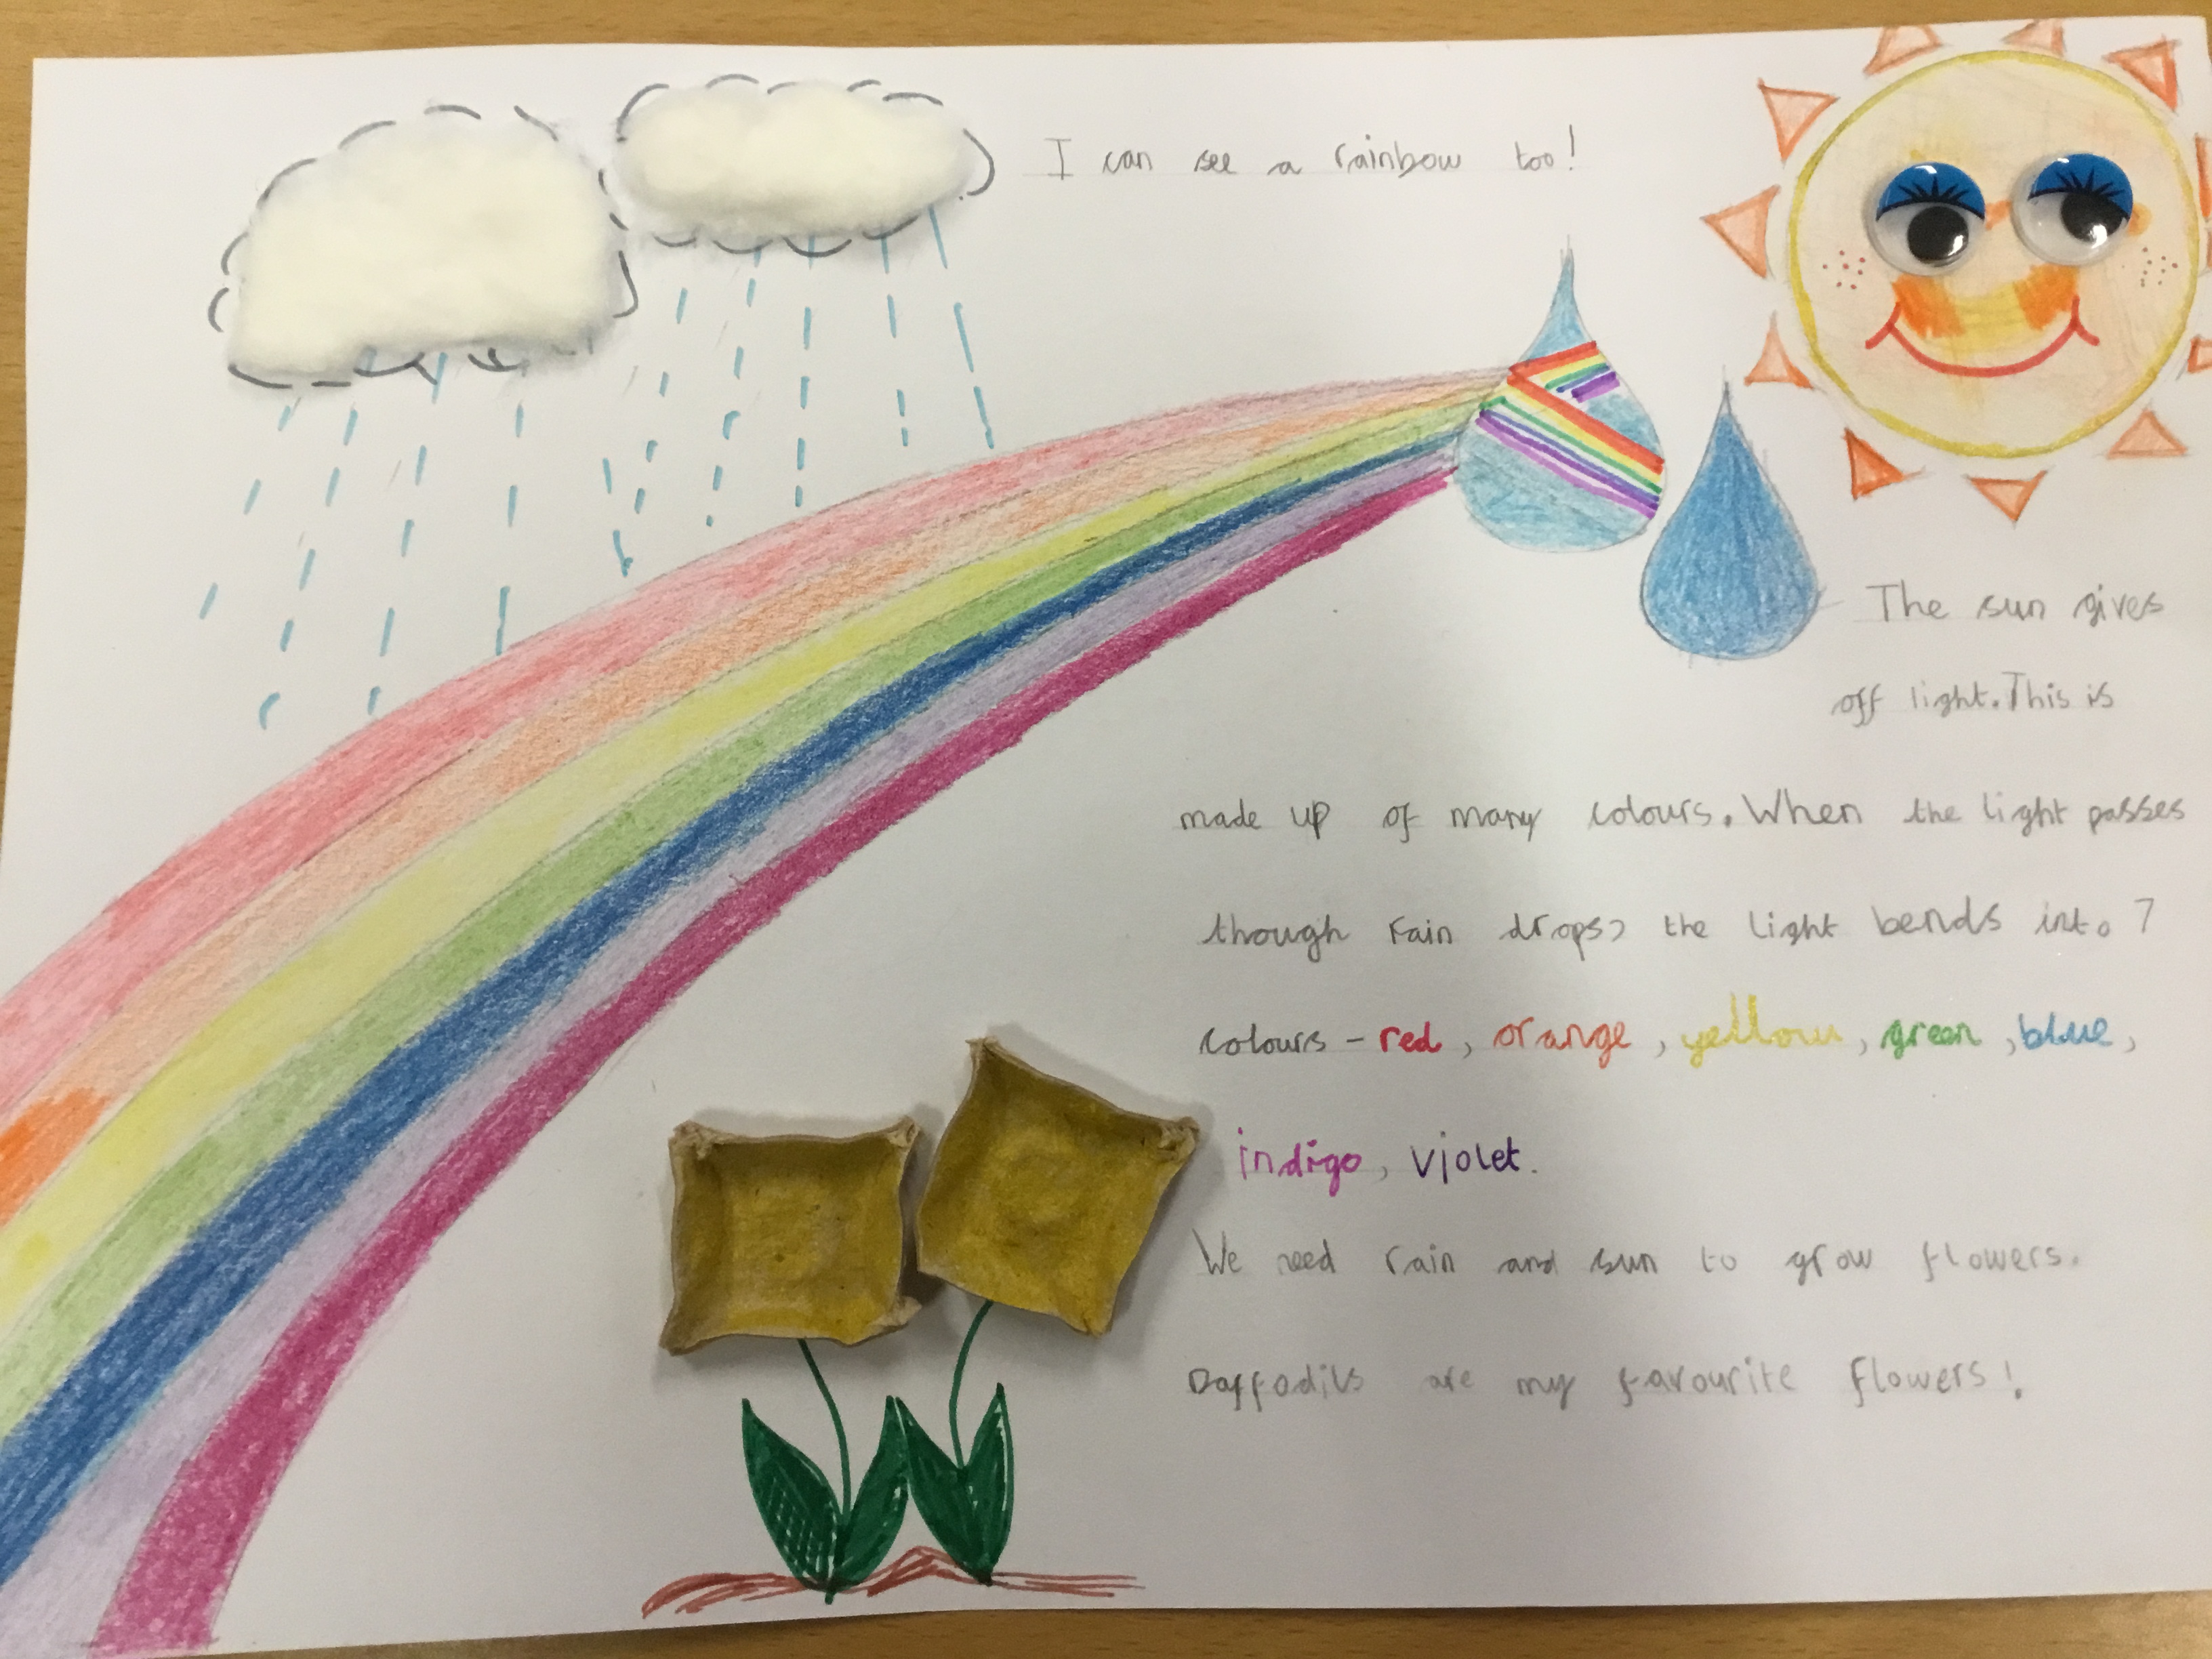 I can see a rainbow too!
The sun gives
off light. This is
made up of many colours. When the light passes
though rain drops, the light bends into 7
colours - red, orange, yellow, green, blue,
indigo, violet.
We need rain and sun to grow flowers.
Daffodils are my favourite flowers!